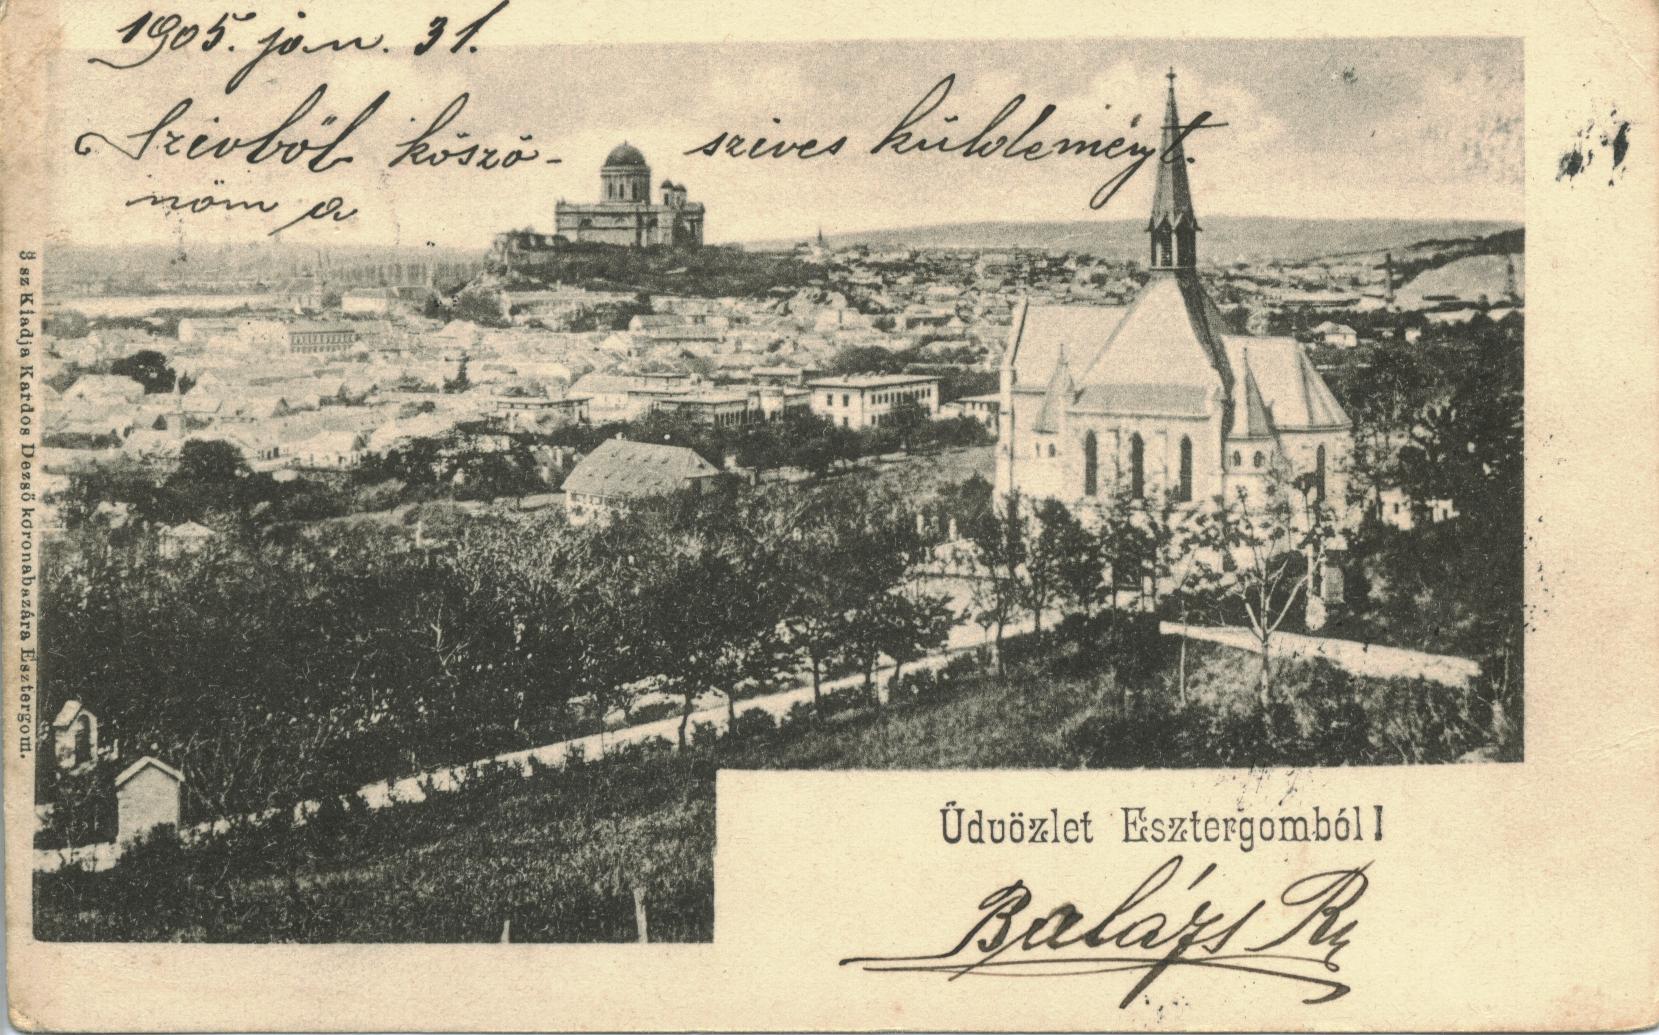 1905. jan. 31.
Szivből köszö- szives küldeményt.
nöm a
8 sz Kiadja Kardos Dezső koronabazára Esztergom.
Üdvözlet Esztergomból!
Balázs